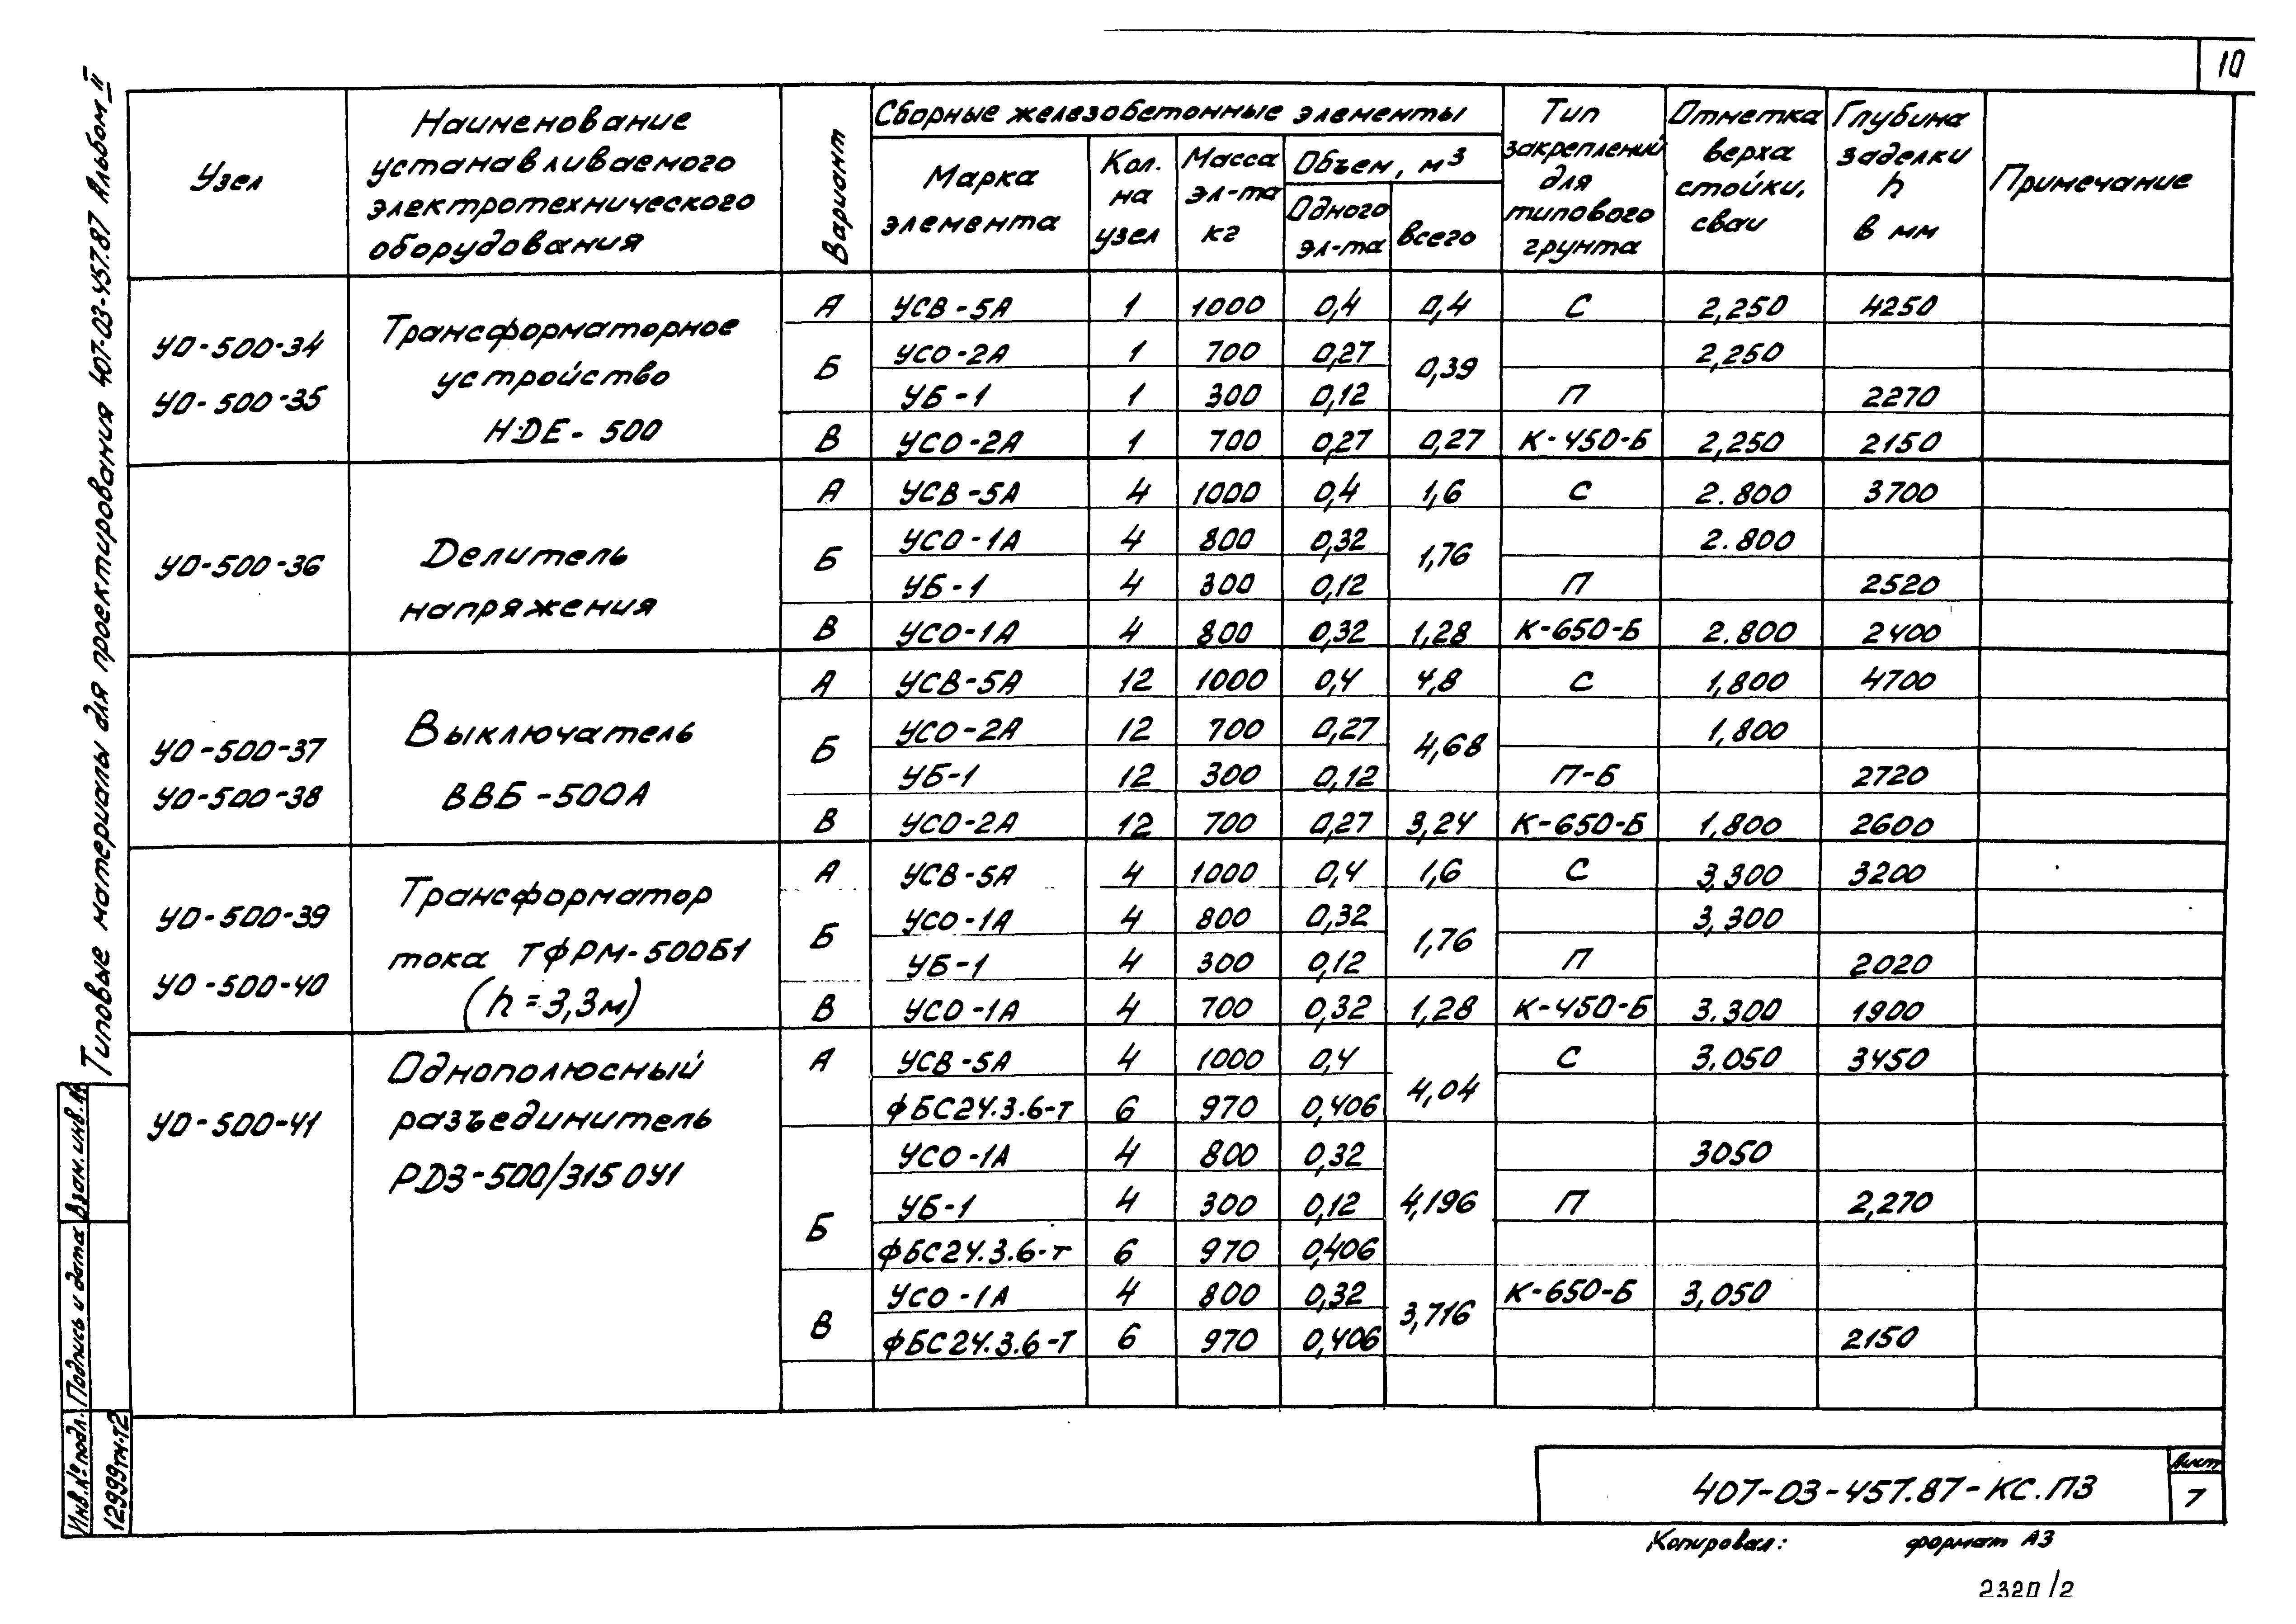 10
Типовые материалы для проектирования 407-03-457.87 Альбом II
Узел
Наименование
устанавливаемого
электротехнического
оборудования
Вариант
Сборные железобетонные элементы
Марка
элемента
Кол.
на
узел
Масса
эл-та
кг
Объем, м³
Одного
эл-та
всего
Тип
закреплений
для
типового
грунта
Отметка
верха
стойки,
сваи
Глубина
заделки
h
в мм
Примечание
УО-500-34
УО-500-35
Трансформаторное
устройство
НДЕ-500
А УСВ-5А 1 1000 0,4 0,4 С 2,250 4250
Б УСО-2А 1 700 0,27 0,39 2,250
УБ-1 1 300 0,12 П 2270
В УСО-2А 1 700 0,27 0,27 К-450-Б 2,250 2150
УО-500-36
Делитель
напряжения
А УСВ-5А 4 1000 0,4 1,6 С 2.800 3700
Б УСО-1А 4 800 0,32 1,76 2.800
УБ-1 4 300 0,12 П 2520
В УСО-1А 4 800 0,32 1,28 К-650-Б 2.800 2400
УО-500-37
УО-500-38
Выключатель
ВВБ-500А
А УСВ-5А 12 1000 0,4 4,8 С 1,800 4700
Б УСО-2А 12 700 0,27 4,68 1,800
УБ-1 12 300 0,12 П-Б 2720
В УСО-2А 12 700 0,27 3,24 К-650-Б 1,800 2600
УО-500-39
УО-500-40
Трансформатор
тока ТФРМ-500Б1
(h=3,3м)
А УСВ-5А 4 1000 0,4 1,6 С 3,300 3200
Б УСО-1А 4 800 0,32 1,76 3,300
УБ-1 4 300 0,12 П 2020
В УСО-1А 4 700 0,32 1,28 К-450-Б 3.300 1900
УО-500-41
Однополюсный
разъединитель
РДЗ-500/3150У1
А УСВ-5А 4 1000 0,4 4,04 С 3.050 3450
ФБС24.3.6-Т 6 970 0,406
Б УСО-1А 4 800 0,32 4,196 3050
УБ-1 4 300 0,12 П 2,270
ФБС24.3.6-Т 6 970 0,406
В УСО-1А 4 800 0,32 3,716 К-650-Б 3,050
ФБС24.3.6-Т 6 970 0,406 2150
Взам.инв.№
Подпись и дата
Инв.№подл.
12999тм-т2
407-03-457.87-КС.ПЗ
Лист
7
Копировал: формат А3
2320/2